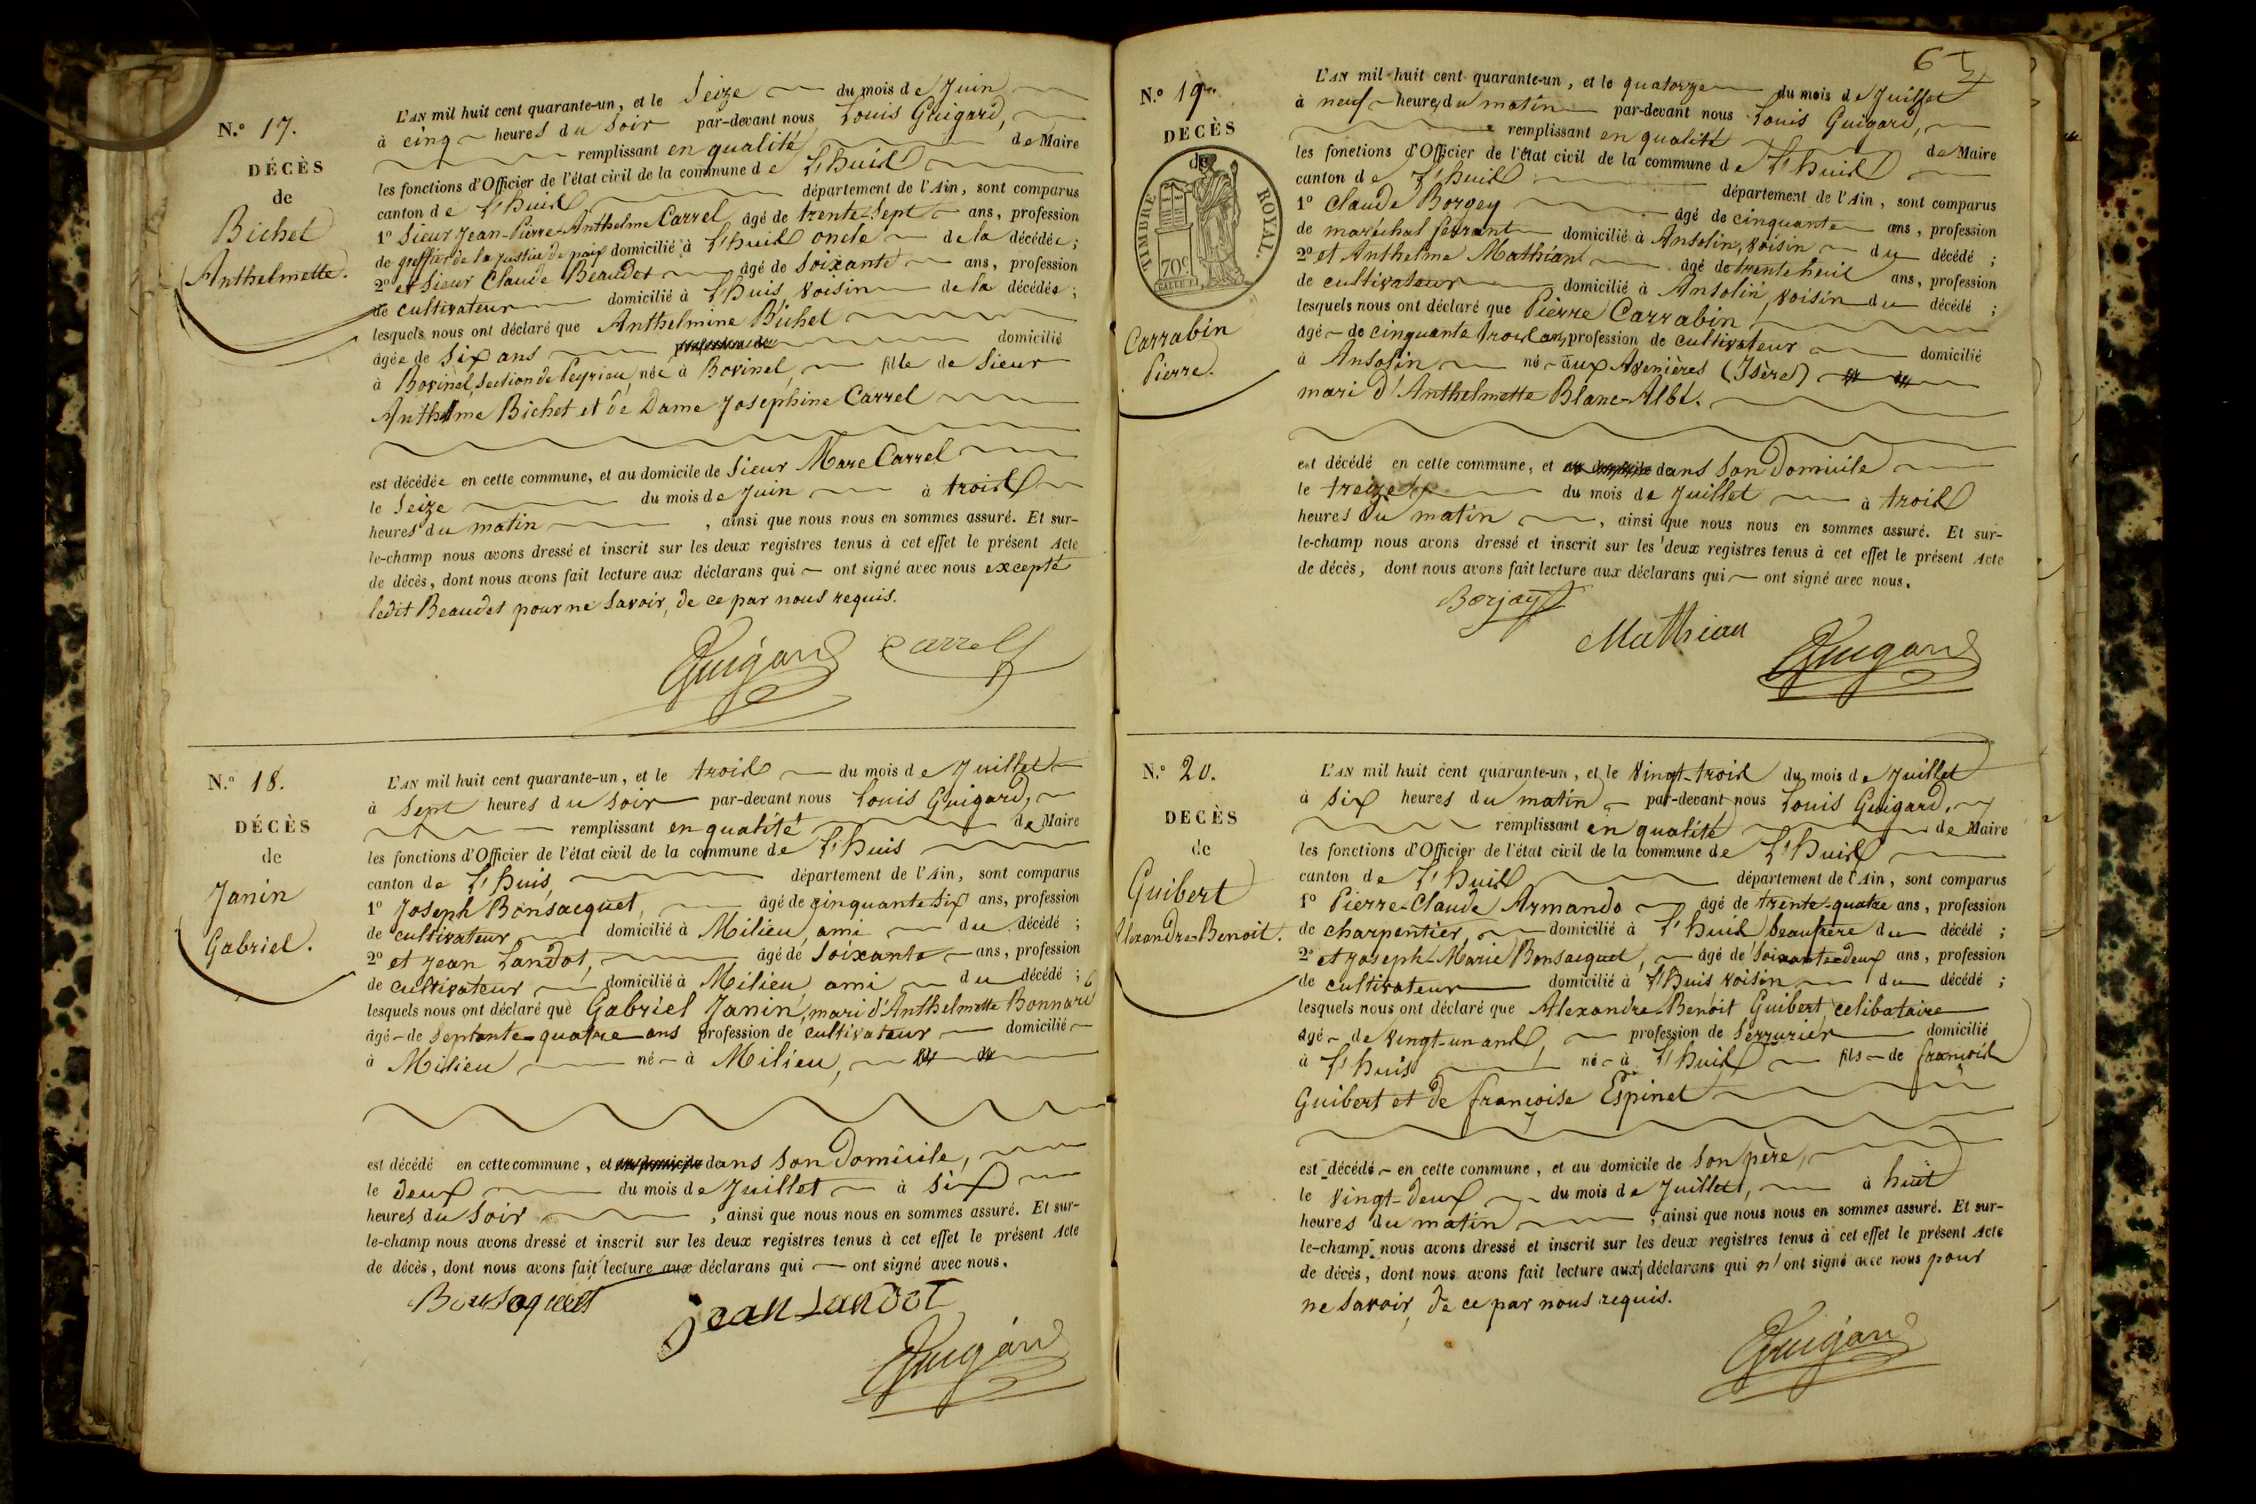 N.º 17.
DÉCÈS
de
Bichet
Anthelmette.
L'AN mil huit cent quarante-un, et le Seize du mois de Juin
à cinq heures du Soir par-devant nous Louis Guigard,
remplissant en qualité de Maire
les fonctions d'Officier de l'état civil de la commune de L'huis
canton de L'huis, département de l'Ain, sont comparus
1º Sieur Jean-Pierre-Anthelme Carrel âgé de trente-Sept ans, profession
de greffier de la Justice de paix domicilié à L'huis oncle de la décédée;
2º et Sieur Claude Beaudet âgé de Soixante ans, profession
de cultivateur domicilié à L'huis, voisin de la décédée;
lesquels nous ont déclaré que Anthelmine Bichet
âgée de Six ans profession de domicilié
à Bovinel, Section de Peyrieu, née à Bovinel, fille de Sieur
Anthelme Bichet et de Dame Josephine Carrel
est décédée en cette commune, et au domicile de Sieur Marc Carrel
le Seize du mois de Juin à trois
heures du matin, ainsi que nous nous en sommes assuré. Et sur-
le-champ nous avons dressé et inscrit sur les deux registres tenus à cet effet le présent Acte
de décès, dont nous avons fait lecture aux déclarans qui ont signé avec nous excepté
ledit Beaudet pour ne Savoir, de ce par nous requis.
Guigard Carrel
N.º 18.
DÉCÈS
de
Janin
Gabriel.
L'AN mil huit cent quarante-un, et le trois du mois de Juillet
à Sept heures du Soir par-devant nous Louis Guigard,
remplissant en qualité de Maire
les fonctions d'Officier de l'état civil de la commune de L'huis
canton de L'huis, département de l'Ain, sont comparus
1º Joseph Bonsacquet, âgé de cinquante Six ans, profession
de cultivateur domicilié à Milieu, ami du décédé;
2º et Jean Landot, âgé de Soixante ans, profession
de cultivateur domicilié à Milieu, ami du décédé;
lesquels nous ont déclaré que Gabriel Janin, mari d'Anthelmette Bonnard
âgé de Septante-quatre ans profession de cultivateur domicilié
à Milieu né à Milieu,
est décédé en cette commune, et au domicile dans Son Domicile,
le deux du mois de Juillet à Six
heures du Soir, ainsi que nous nous en sommes assuré. Et sur-
le-champ nous avons dressé et inscrit sur les deux registres tenus à cet effet le présent Acte
de décès, dont nous avons fait lecture aux déclarans qui ont signé avec nous.
Bonsaquet jean Landot
Guigard
N.º 19.
DECÈS
de
TIMBRE ROYAL.
70c
Carrabin
Pierre.
L'AN mil huit cent quarante-un, et le quatorze du mois de Juillet
à neuf heures du matin par-devant nous Louis Guigard,
remplissant en qualité de Maire
les fonctions d'Officier de l'état civil de la commune de L'huis
canton de L'huis département de l'Ain, sont comparus
1º Claude Borgey âgé de cinquante ans, profession
de maréchal ferrant domicilié à Ansolin, voisin du décédé;
2º et Anthelme Mathian âgé de trente huit ans, profession
de cultivateur domicilié à Ansolin, voisin du décédé;
lesquels nous ont déclaré que Pierre Carrabin,
âgé de cinquante trois ans, profession de cultivateur domicilié
à Ansolin né aux Avenières (Isère)
mari d'Anthelmette Blanc-Albt.
est décédé en cette commune, et au domicile dans Son Domicile
le treize du mois de Juillet à trois
heures du matin, ainsi que nous nous en sommes assuré. Et sur-
le-champ nous avons dressé et inscrit sur les deux registres tenus à cet effet le présent Acte
de décès, dont nous avons fait lecture aux déclarans qui ont signé avec nous.
Borjay
Mathian Guigard
N.º 20.
DECÈS
de
Guibert
Alexandre-Benoit.
L'AN mil huit cent quarante-un, et le Vingt-trois du mois de Juillet
à Six heures du matin par-devant nous Louis Guigard,
remplissant en qualité de Maire
les fonctions d'Officier de l'état civil de la commune de L'huis
canton de L'huis département de l'Ain, sont comparus
1º Pierre-Claude Armando âgé de trente-quatre ans, profession
de charpentier, domicilié à L'huis beaufrère du décédé;
2º et Joseph-Marie Bonsacquet, âgé de Soixante-deux ans, profession
de cultivateur domicilié à L'huis voisin du décédé;
lesquels nous ont déclaré que Alexandre-Benoit Guibert, celibataire
âgé de vingt-un ans, profession de Serrurier domicilié
à L'huis né à L'huis fils de francois
Guibert et de francoise Espinet
est décédé en cette commune, et au domicile de Son père,
le vingt-deux du mois de Juillet, à huit
heures du matin, ainsi que nous nous en sommes assuré. Et sur-
le-champ nous avons dressé et inscrit sur les deux registres tenus à cet effet le présent Acte
de décès, dont nous avons fait lecture aux déclarans qui n'ont signé avec nous pour
ne Savoir, de ce par nous requis.
Guigard